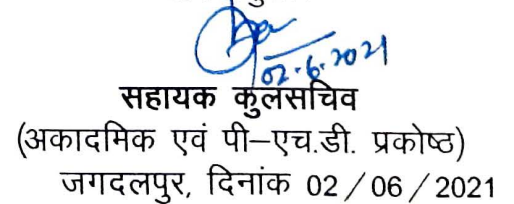 02.6.2021
सहायक कुलसचिव
(अकादमिक एवं पी–एच.डी. प्रकोष्ठ)
जगदलपुर, दिनांक 02 / 06 / 2021